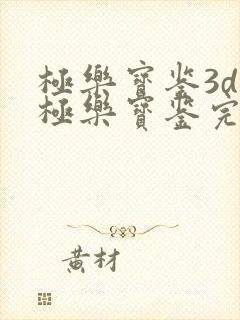 極樂寶鉴3d
極樂寶鉴完
黃材